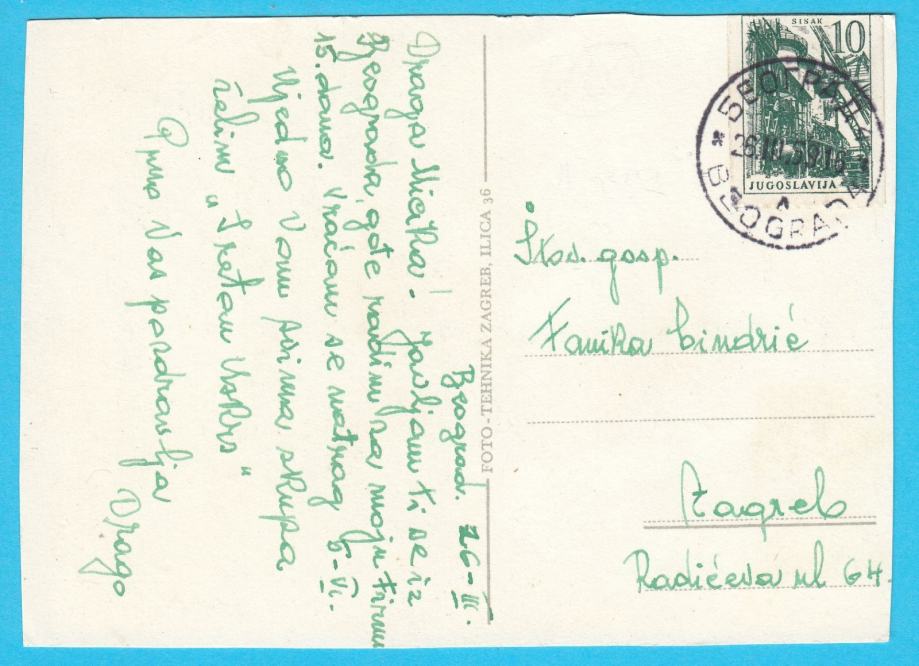 Beograd. 26-III.
Draga Micika! Javljam ti se iz
Beograda, gde radim sa mojom firmom
15. dana. Vraćam se natrag 5-VI.
Ujedno Vam svima skupa
želim „Sretan Uskrs"
Puno Vas pozdravlja
Drago
FOTO-TEHNIKA ZAGREB, ILICA 36
SISAK
10
JUGOSLAVIJA
БЕОГРАД
BEOGRAD
Štov. gosp.
Fanika Cindrić
Zagreb
Radićeva ul 64.